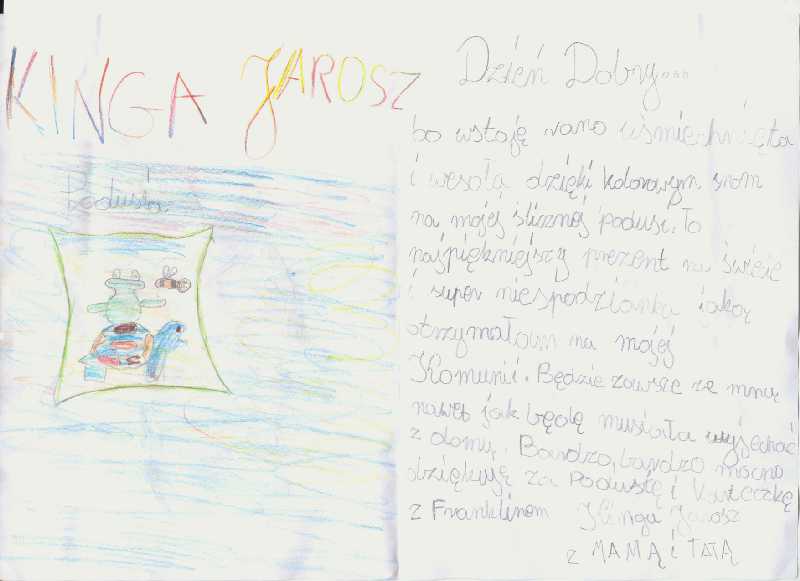 KINGA JAROSZ
Podusia
Dzień Dobry...
bo wstaję rano uśmiechnięta
i wesoła dzięki kolorowym snom
na mojej ślicznej podusi. To
najpiękniejszy prezent na świecie
i super niespodzianka jaką
otrzymałam na mojej
Komunii. Będzie zawsze ze mną
nawet jak będę musiała wyjechać
z domu. Bardzo, bardzo mocno
dziękuję za Poduszkę i
z Franklinem Kinga Jarosz
z MAMĄ i TATĄ